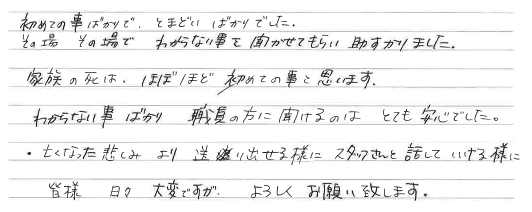 初めての事ばかりで、とまどいばかりでした。
その場 その場で わからない事を聞かせてもらい助すかりました。
家族の死は、ほぼほど初めての事と思います。
わからない事ばかり 職員の方に聞けるのは とても安心でした。
・亡くなった悲しみより 送り出せる様に スタッフさんと話していける様に
皆様 日々 大変ですが、よろしくお願い致します。